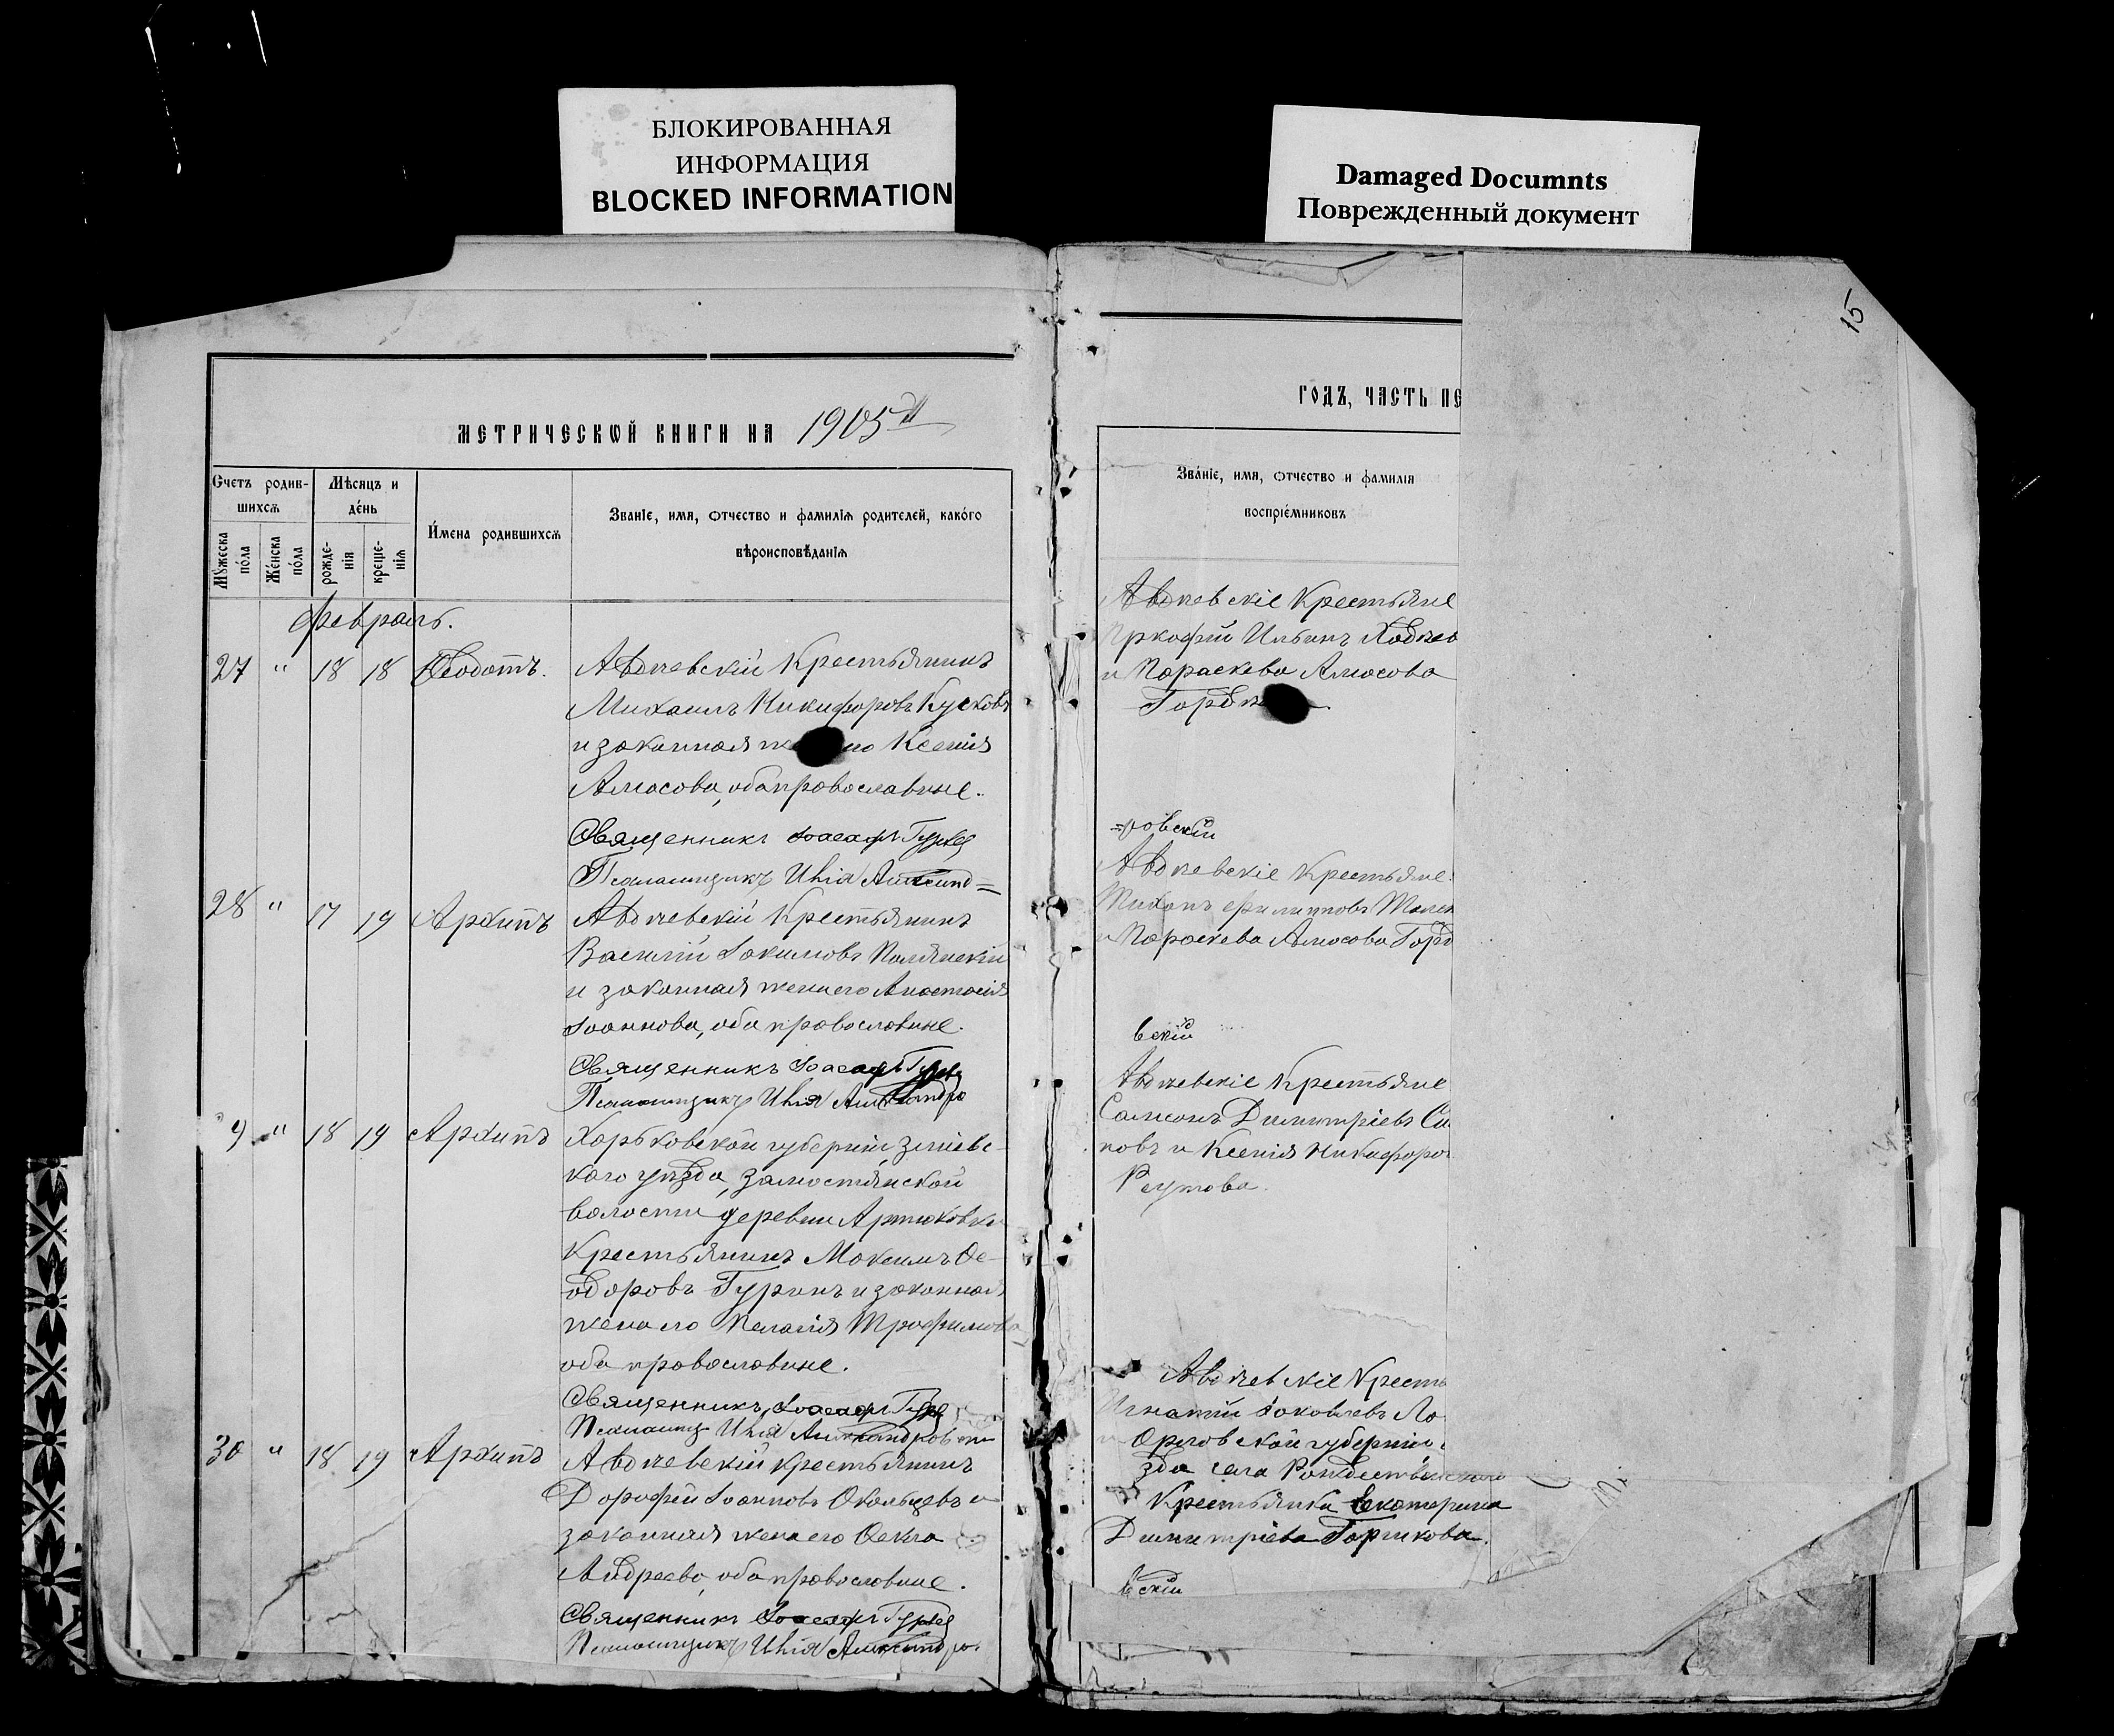 БЛОКИРОВАННАЯ
ИНФОРМАЦИЯ
BLOCKED INFORMATION
Damaged Documnts
Поврежденный документ
15
МЕТРИЧЕСКѠЙ КНИГИ НА 1905й
Счетъ родив-
шихсѧ
Мѣсѧцъ и
де́нь
Мꙋжеска
по́ла
Же́нска
по́ла
рожде-
нія
креще-
нія
И́мена родившихсѧ
Званіе, имя, ѻтчество и фамиліѧ родителей, како́го
вѣроисповѣданіѧ
Февраль.
27 " 18 18 Ѳеодотъ.
Авдѣевскій Крестьянинъ
Михаилъ Никифоровъ Кусковъ
и законная его Ксенія
Амосова, оба православные.
Священникъ Іоасафъ
Псаломщикъ Илія Александ=
28 " 17 19 Архипъ
Авдѣевскій Крестьянинъ
Василій Іакимовъ
и законная жена его Анастасія
Іоаннова, оба православные.
Священникъ Іоасафъ
Псаломщикъ Илія Александро
9 " 18 19 Архипъ
Харьковской губерніи, Зміевс-
каго уѣзда, Замостянской
волости деревни Артюховки
Крестьянинъ Максимъ Ѳе-
одоровъ Гуринъ и законная
жена его Пелагія Трофимова
оба православные.
Священникъ Іоасафъ
Псаломщ Илія Александровскій
30 " 18 19 Архипъ
Авдѣевскій крестьянинъ
Дорофей Іоанновъ Окольцевъ и
законная жена его Ѳекла
Андреева, оба православные.
Священникъ Іоасафъ
Псаломщикъ Илія Александро.
ГОДЪ, ЧАСТЬ ПЕ
Зва́ніе, имя, ѻтчество и фамилія
воспріе́мниковъ
Авдѣевскіе Крестьяне
Ильинъ
и Параскева Амосова
=ровскій
Авдѣевскіе Крестьяне
Тихонъ Филипповъ
и Параскева Амосова
вскій
Авдѣевскіе Крестьяне
Самсонъ Димитріевъ Си
новъ и Ксенія Никифоро
Реутова.
Авдѣевскіе Кресть
Игнатій Іаковлевъ Ло
Орловской губерніи
зда села Рождественскаго
Крестьянка Екатерина
Димитріева Горшкова.
вскій